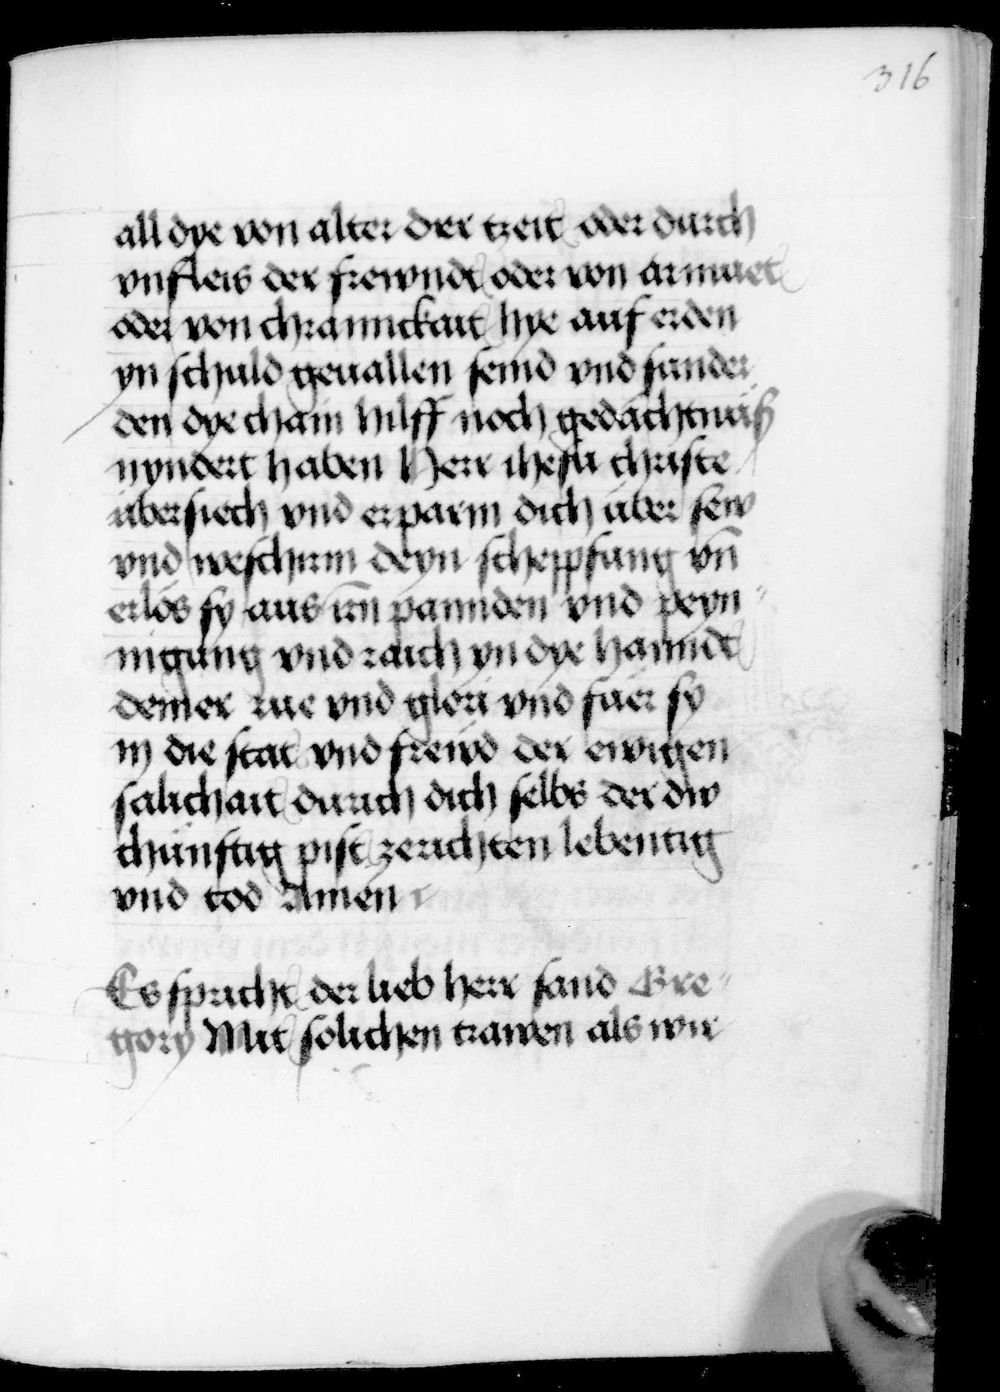 316
all dye von alter der tzeit oder durch
vnfleis der frewndt oder von armuet
oder von chrannckait hye auf erden
yn schuld geuallen seind vnd sunder
den dye chain hilff noch gedächtnüß
nyndert haben Herr ihesu christe
übersiech vnd erparm dich über sew
vnd weschirm deyn scheppfung vn̄
erlös sy aus irn̄ pannden vnd peyn
nigung vnd raich yn dye hanndt
deiner rue vnd glori vnd füer sy
in die stat vnd freẅd der ewigen
salichait durich dich selbs der dw
chünftig pist zerichten lebentig
vnd tod Amen
Es spricht der lieb herr sand Gre
gory Mit solichen trawen als wir